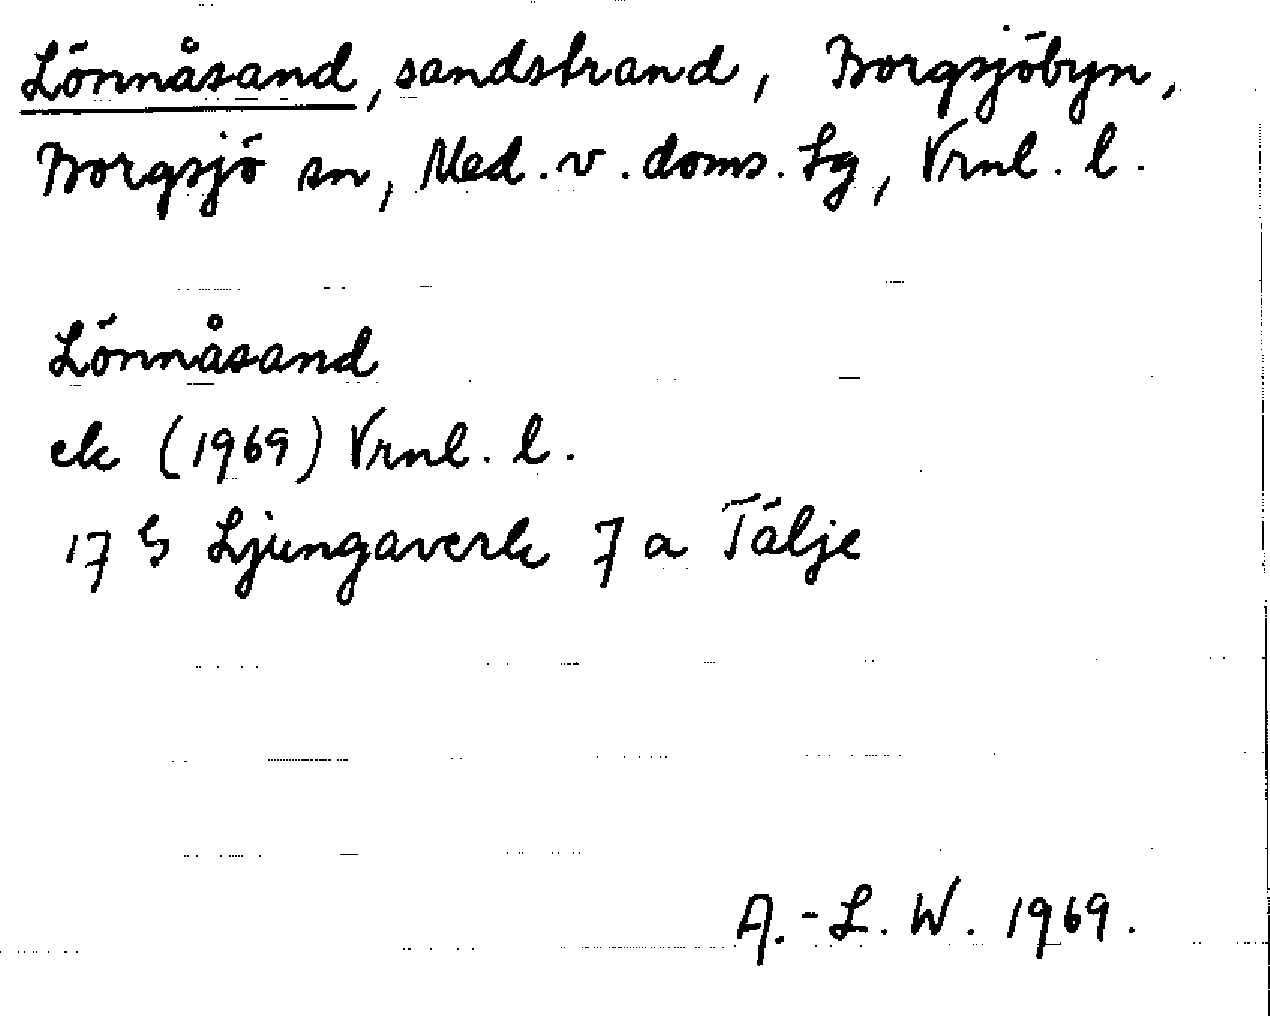 Lönnåsand, sandstrand, Borgsjöbyn,
Borgsjö sn, Med. v. doms. Lg, Vrnl. l.
Lönnåsand
ek (1969) Vrnl. l.
17 G Ljungaverk 7 a Tälje
A.-L. W. 1969.